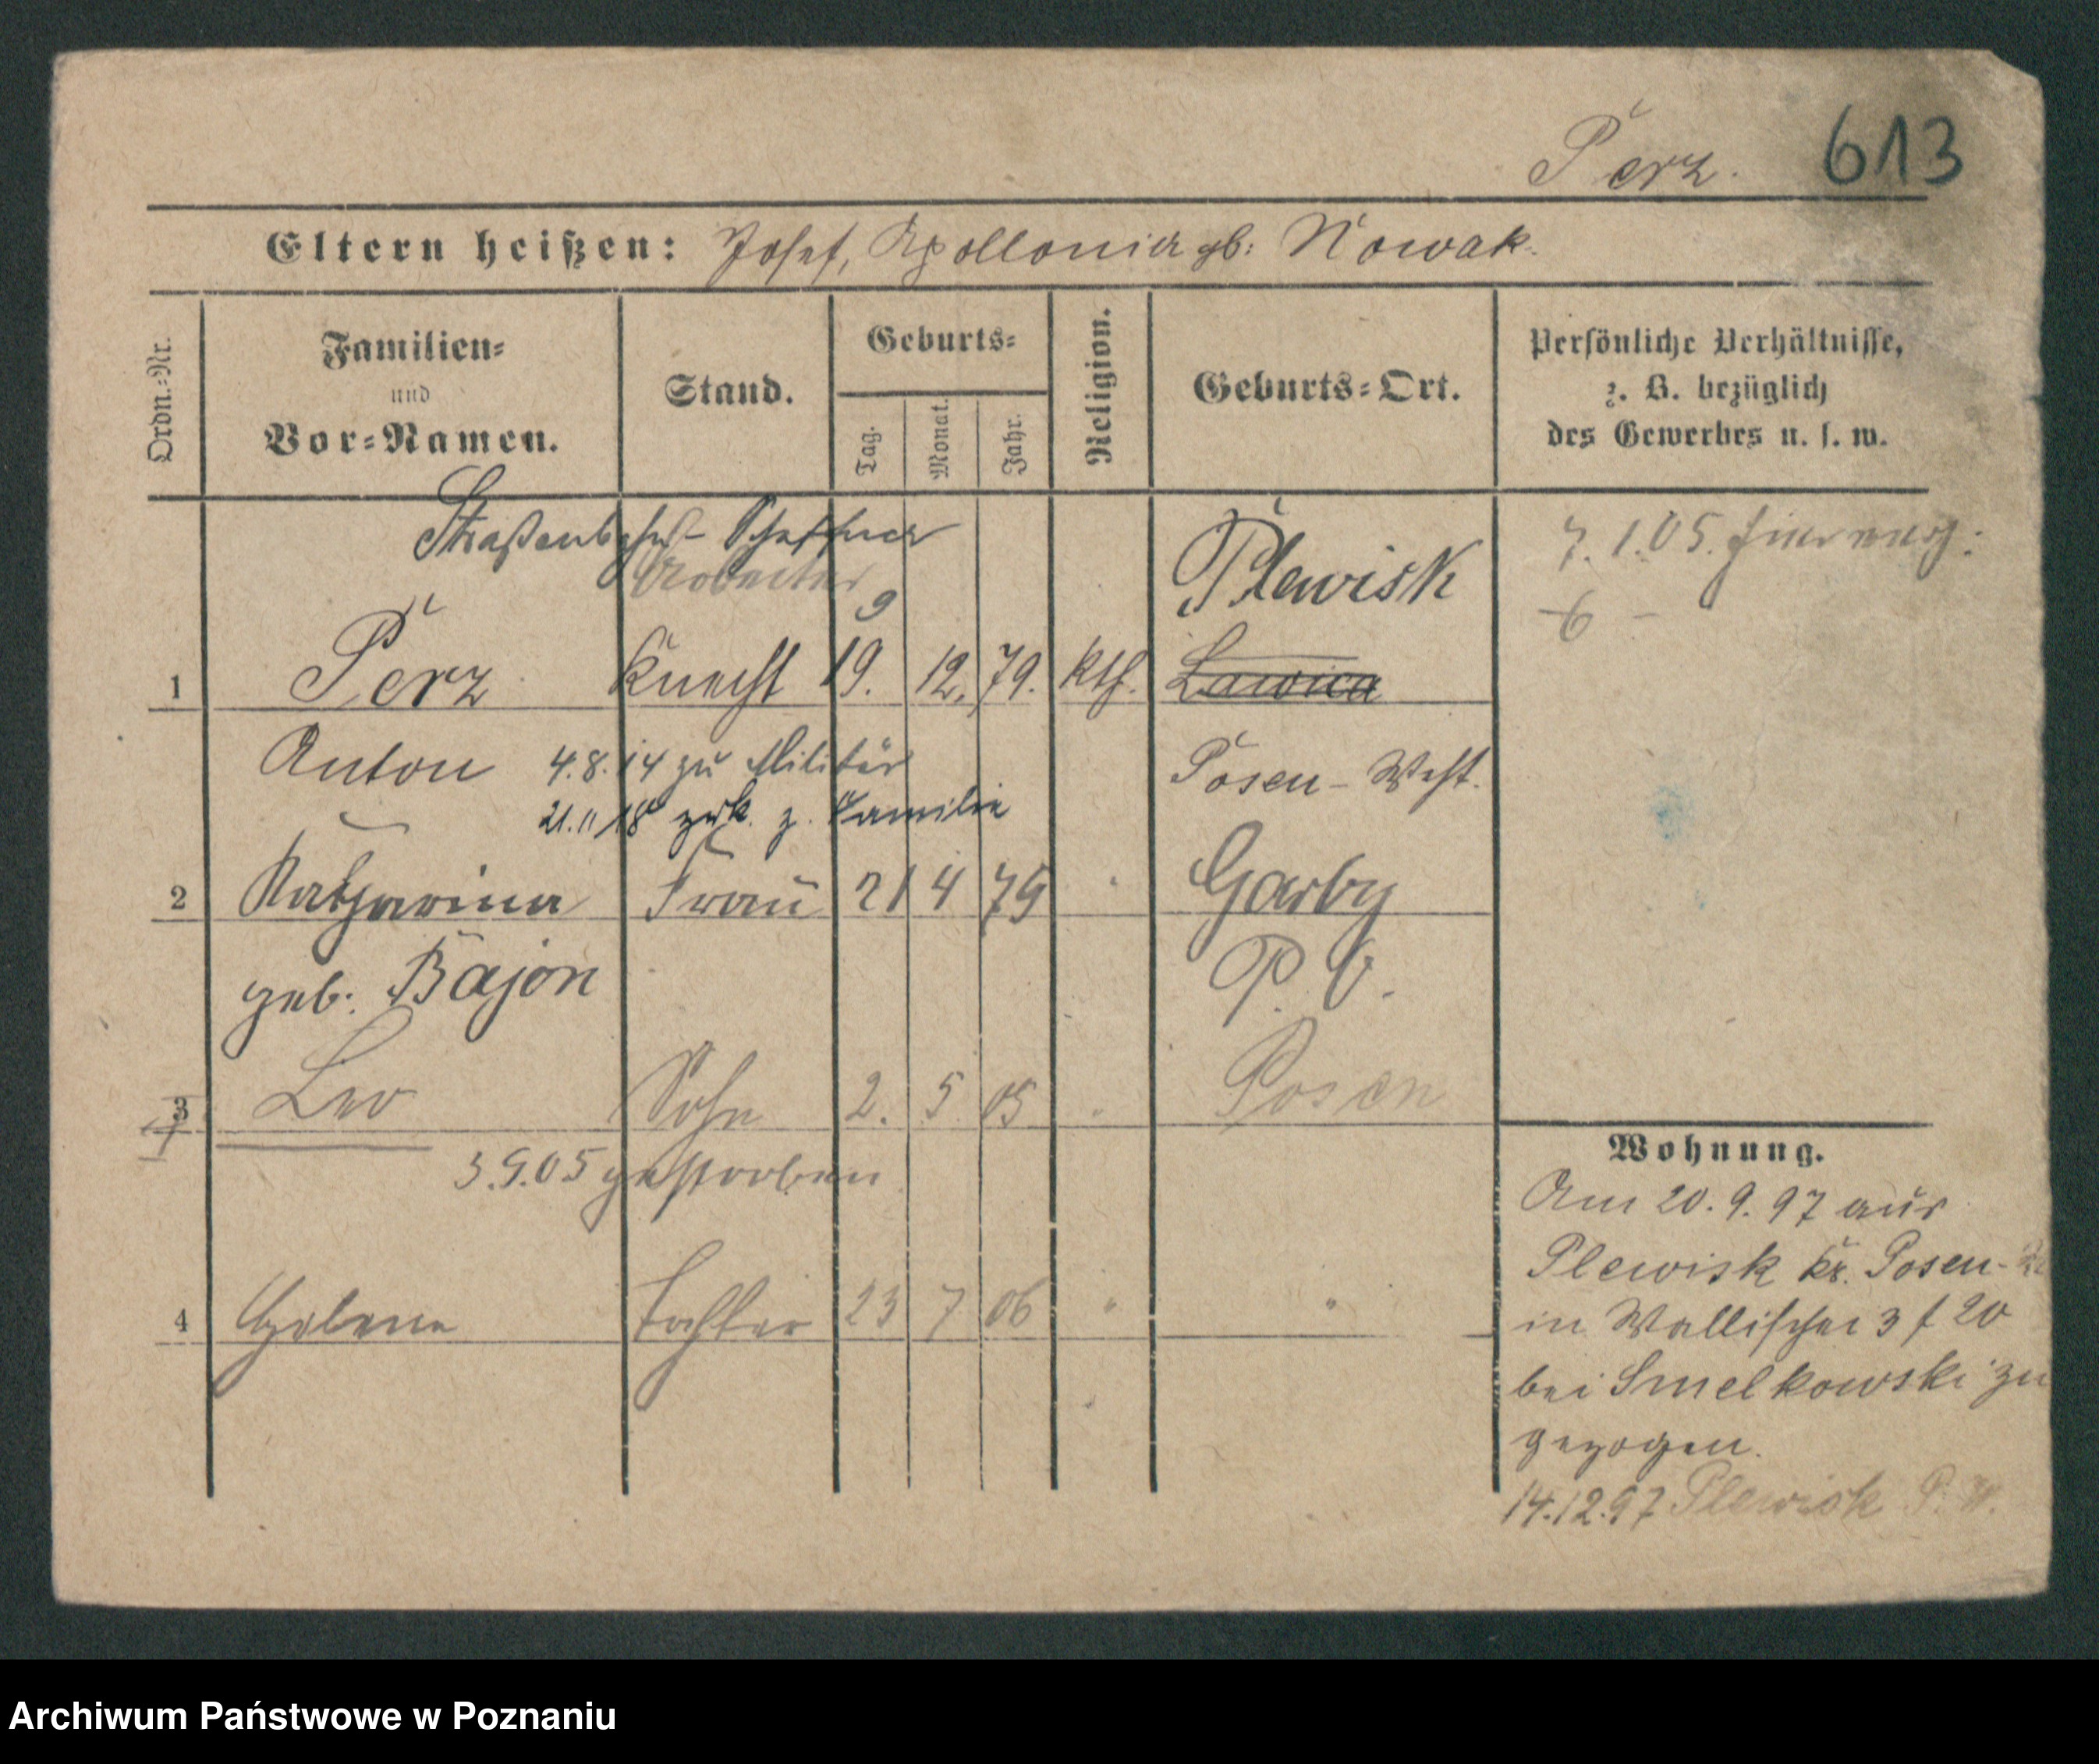 Perz. 613
Eltern heißen: Josef, Apollonia gb: Nowak.
Ordn.-Nr.
Familien-
und
Vor-Namen.
Stand.
Geburts-
Tag.
Monat.
Jahr.
Religion.
Geburts-Ort.
Persönliche Verhältnisse,
z. B. bezüglich
des Gewerbes u. s. w.
Straßenbahn-Schaffner
Arbeiter
9
Plewisk
7.1.05.
6 -
1 Perz Knecht 19. 12. 79. kth. Lawica
Anton 4.8.14 zu Militär Posen-West.
21.11.18 zrk. z. Familie
2 Katharina Frau 21 4 79 " Garby
geb: Bajon P. O.
3 Leo Sohn 2. 5 05 " Posen
3.9.05 gestorben
4 Helene Tochter 23 7 06 " "
Wohnung.
Am 20.9.97 aus
Plewisk Kr. Posen-
in Wallischei 3 f 20
bei Smelkowski zu
gezogen.
14.12.97 Plewisk P. W.
Archiwum Państwowe w Poznaniu